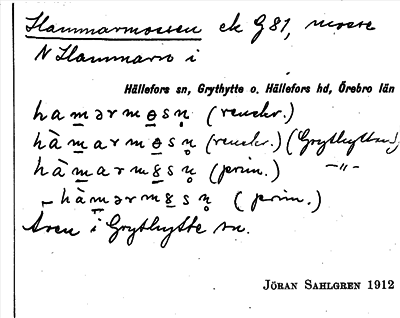 Hammarmossen ek G 81, mosse
N Hammarn i
Hällefors sn, Grythytte o. Hällefors hd, Örebro län
hamarmosn (renskr.)
hàmarmosn (renskr.) (Grythyttan)
hàmarmosn (prim.) –"–
– hàmərmosn (prim.)
Även i Grythytte sn.
JÖRAN SAHLGREN 1912